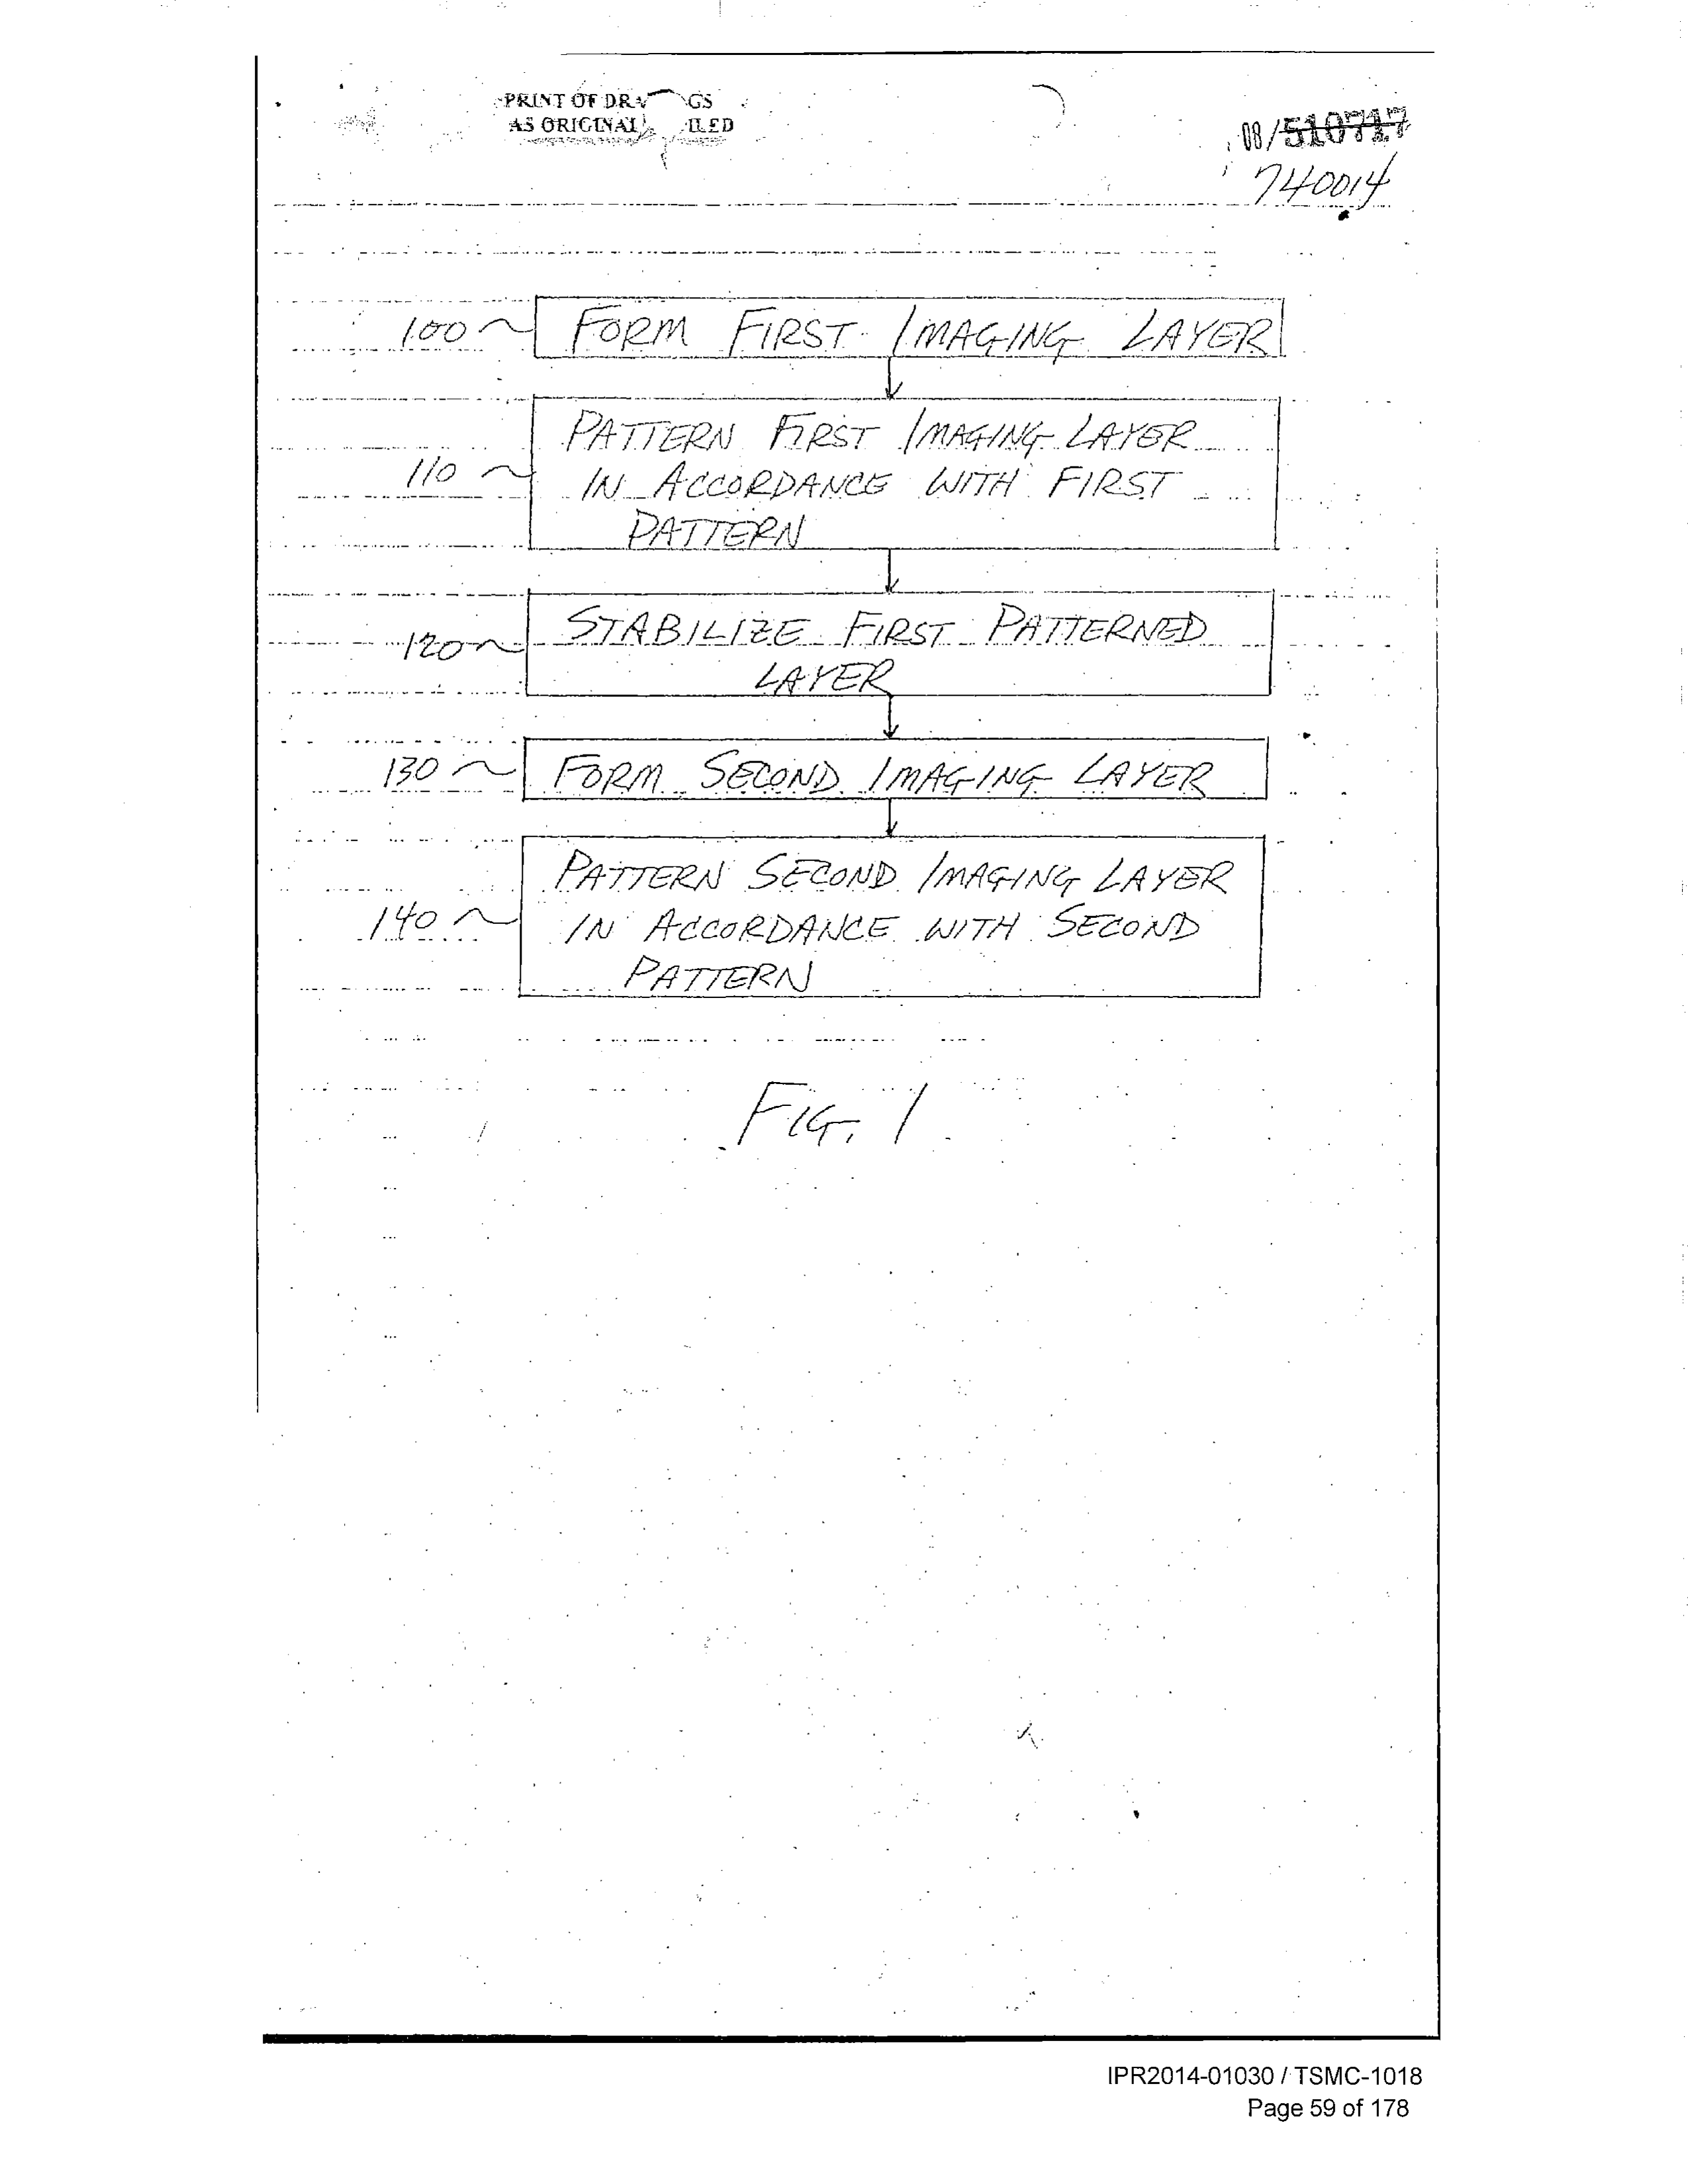 PRINT OF DRA GS
AS ORIGINAL ILED
08/510717
740014
100 FORM FIRST IMAGING LAYER
PATTERN FIRST IMAGING LAYER
110 IN ACCORDANCE WITH FIRST
PATTERN
120 STABILIZE FIRST PATTERNED
LAYER
130 FORM SECOND IMAGING LAYER
PATTERN SECOND IMAGING LAYER
140 IN ACCORDANCE WITH SECOND
PATTERN
FIG. 1
IPR2014-01030 / TSMC-1018
Page 59 of 178